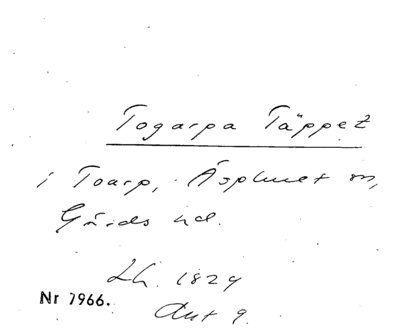 Togarpa Täppet
i Toarp, Äsphult sn,
Gärds hd.
Lh. 1829
Nr 7966.
Akt 9